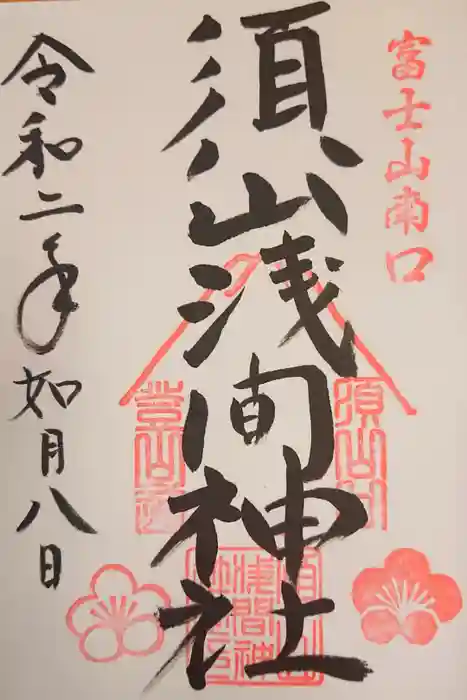 富士山南口
須山浅間神社
令和二年如月八日